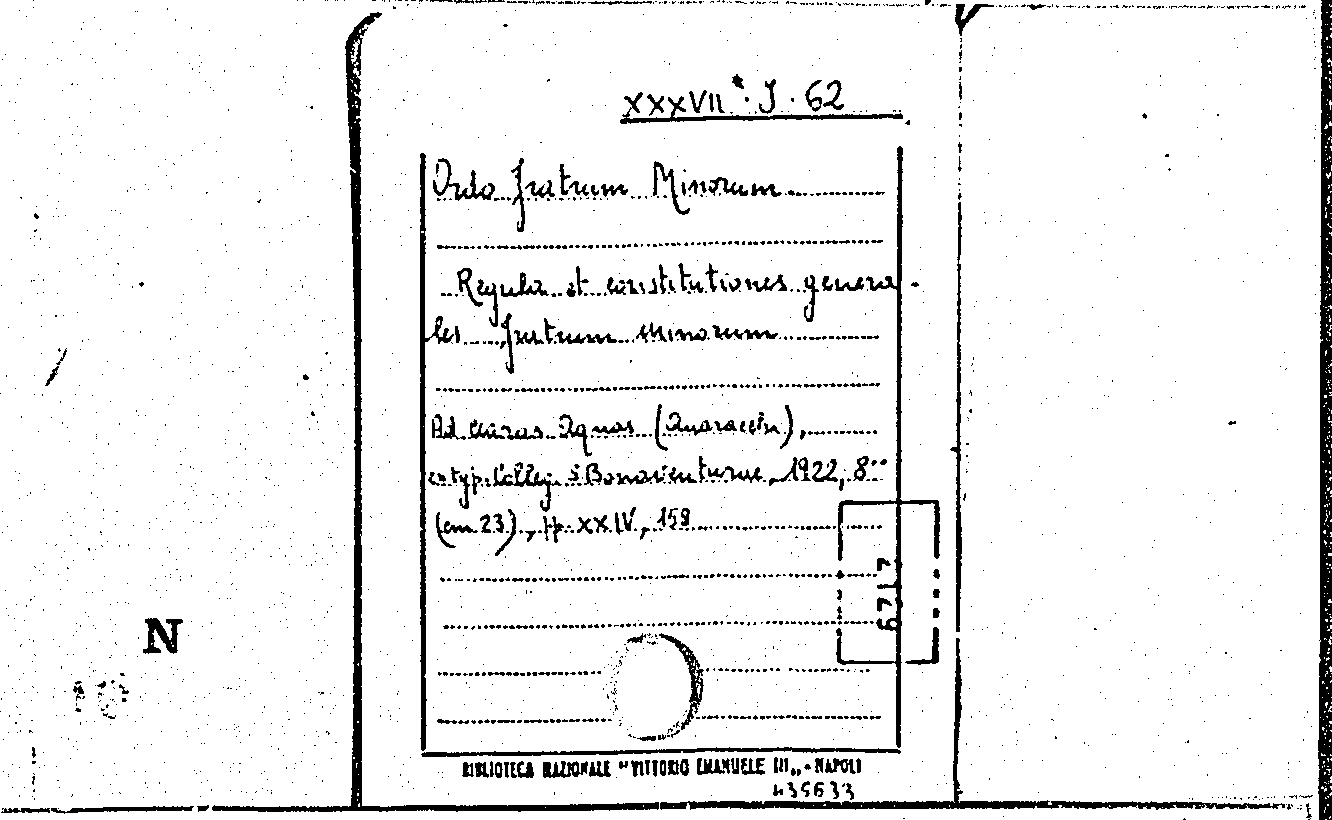 XXXVII*. J. 62
Ordo Fratrum Minorum
Regula et constitutiones genera-
les Fratrum Minorum
Ad Claras Aquas (Quaracchi),
ex typ. Colleg. S Bonaventurae, 1922, 8°
(cm 23), pp. XXIV, 159
6717
N
BIBLIOTECA NAZIONALE "VITTORIO EMANUELE III„ - NAPOLI
435633